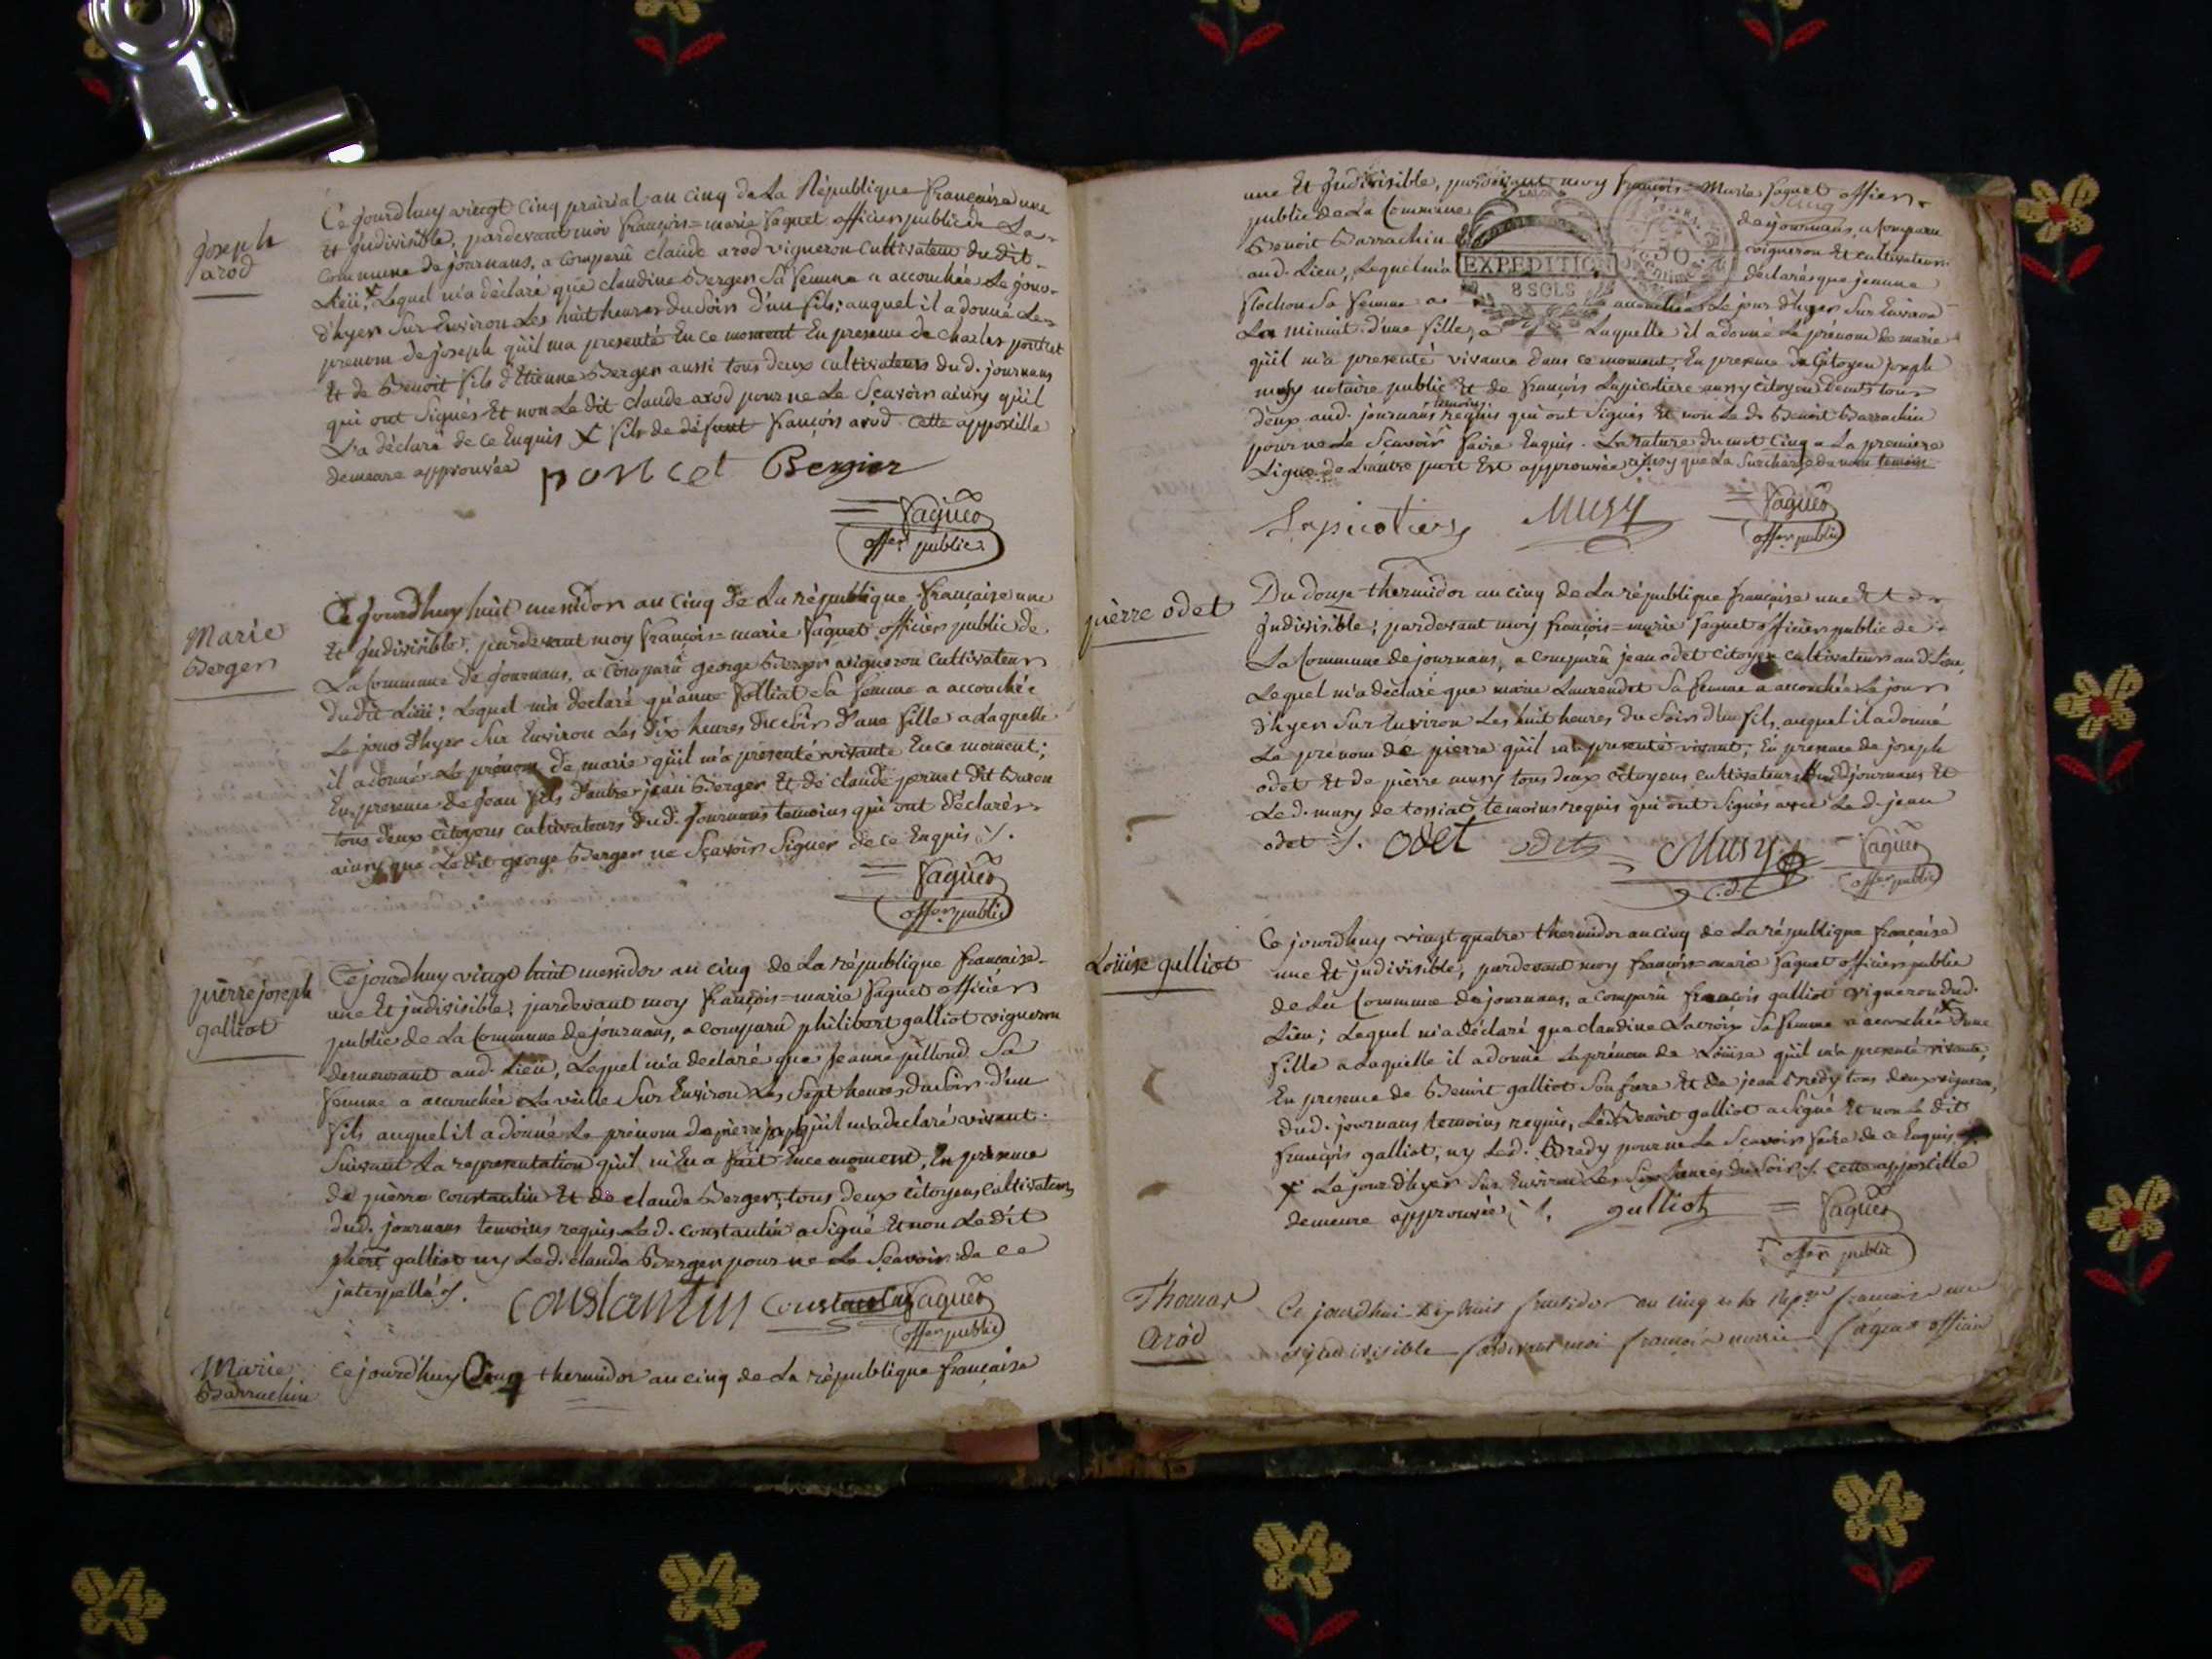 joseph
arod
Ce jourdhuy vingt cinq prairial an cinq de La République française une
Et Jndivisible, pardevant moi françois=marie faguet officier public de La
Commune de journans, a comparû claude arod vigneron cultivateur du dit
Lieü, x Lequel m'a déclaré que claudine Berger Sa femme a accouchée Le jour
d'hyer Sur Environ Les huit heures du Soir d'un fils; auquel il a donné Le
prenom de joseph qu'il m'a presenté En ce moment En presence de Charles poncet
Et de Benoit fils d'Etienne Berger aussi tous deux cultivateurs dud. journans
qui ont Signés Et non Le dit claude arod pour ne Le Sçavoir ainsy qu'il
L'a déclaré de ce Enquis x fils de défunt françois arod cette appostille
demeure approuvée poncet Berger
= faguet
offer public
Marie
Berger
Ce jourdhuy huit messidor an cinq de La république française une
Et Jndivisible, pardevant moy françois=marie faguet officier public de
La Commune de journans, a comparû george Berger vigneron Cultivateur
dudit Lieü; Lequel m'a declaré qu'anne folliat Sa femme a accouchée
Le jour d'hyer Sur Environ Les dix heures du Soir d'une fille a Laquelle
il a donné Le prénom de marie qu'il m'a présenté vivante En ce moment;
En presence de jean fils d'autre jean Berger Et de claude pernet dit Buron
tous deux Citoyens cultivateurs dud. journans temoins qui ont déclarés
ainsy que Le dit george Berger ne Sçavoir Signer de ce Enquis ./.
= faguet
offer public
pièrre joseph
galliot
Ce jourdhuy vingt huit messidor an cinq de La république française
une Et jndivisible, pardevant moy françois=marie faguet officier
public de La Commune de journans, a comparû philibert galliot vigneron
demeurant aud. Lieu, Lequel m'a declaré que jeanne pilloud Sa
femme a accouchée La veille Sur Environ Les Sept heures du Soir d'un
fils auquel il a donné Le prénom de pièrre joseph qu'il m'a declaré vivant
Suivant La representation qu'il m'En a fait En ce moment, En présence
de pièrre constantin Et de claude Berger, tous deux citoyens cultivateurs
dud. journans temoins requis Led. constantin a Signé Et non Le dit
phert galliot ny Led. claude Berger pour ne Le Sçavoir de ce
jnterpellés. constantin constantin faguet
offer public
Marie
Barrachin
Ce jourd'huy Cinq thermidor an cinq de La république française
une Et Jndivisible, pardevant moy françois=Marie faguet officier
public de La Commune de journans, a comparu
EXPEDITION
8 SOLS
50
Benoit Barrachin vigneron Et cultivateur
aud. Lieu, Lequel m'a déclaré que jeanne
flochon Sa femme a accouchée Le jour d'hyer Sur Environ
La minuit d'une fille, a Laquelle il a donné Le prénom de marie
qu'il m'a presenté vivante dans ce moment, En presence du Citoyen joseph
musy notaire public Et de françois Lapicotiere aussy citoyen tous
deux aud. journans temoins requis qui ont Signés Et non Le d. Benoit Barrachin
pour ne Le Sçavoir faire Enquis. La rature du mot Cinq a La premiere
Ligne de L'autre part Est approuvée ainsy que La Surcharge du nom temoins
Lapicotiere Musy = faguet
offer public
pièrre odet
Du douze thermidor an cinq de La république française une Et
Jndivisible; pardevant moy françois=marie faguet officier public de
La Commune de journans, a comparû jean odet Citoyen cultivateur aud. Lieu,
Lequel m'a déclaré que marie Laurendet Sa femme a accouchée Le jour
d'hyer Sur Environ Les huit heures du Soir d'un fils, auquel il a donné
Le prénom de pierre qu'il m'a presenté vivant, En presence de joseph
odet Et de pièrre musy tous deux citoyens cultivateurs aud. journans Et
Le d. musy de tossiat temoins requis qui ont Signés avec Le d. jean
odet ./. odet odet Musy faguet
offer public
Loüise galliot
Ce jourdhuy vingt quatre thermidor an cinq de La république française
une Et jndivisible, pardevant moy françois=marie faguet officier public
de La Commune de journans, a comparû françois galliot vigneron dud.
Lieu; Lequel m'a déclaré que claudine Lacroix Sa femme a accouchée x d'une
fille a Laquelle il a donné Le prénom de Loüise qu'il m'a presenté vivante,
En presence de Benoit galliot Son frere Et de jean Bredy tous deux vignerons,
dud. journans temoins requis, Led. Benoit galliot a Signé Et non Le dit
françois galliot, ny Led. Bredy pour ne Le Sçavoir faire de ce Enquis ./.
x Le jour d'hyer Sur Environ Les Six heures du Soir ./. cette appostille
demeure approuvée ./. galliot = faguet
offer public
Thomas
Arod
Ce jourdhui dix huit fructidor an cinq de la Repque francaise une
et jndivisible pardevant moi francois marie faguet officier